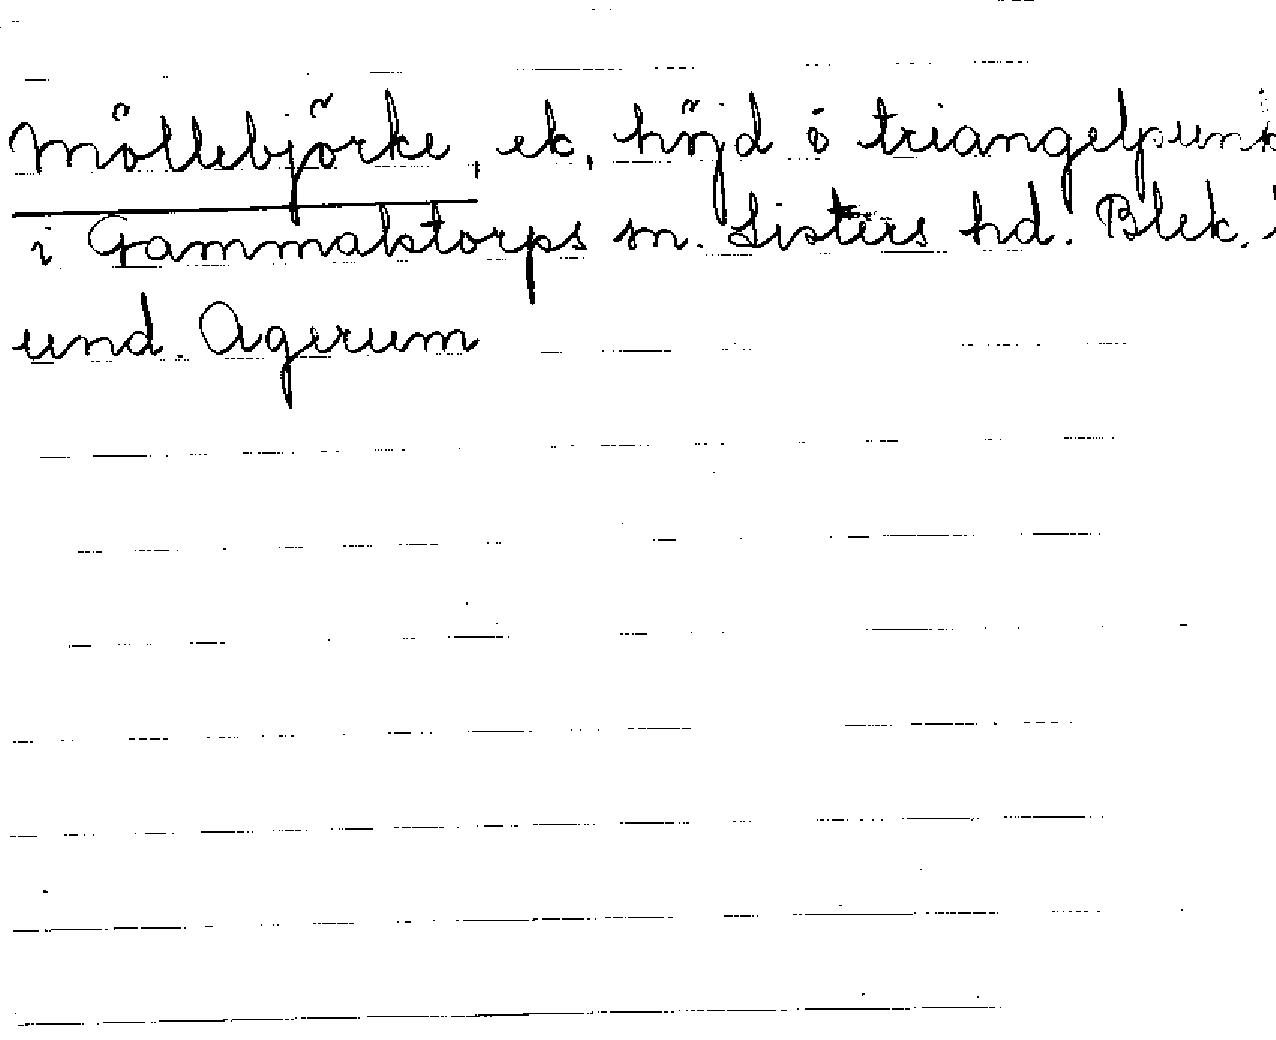 Möllebjörke, ek, höjd o triangelpunk
i Gammalstorps sn. Listers hd. Blek.
und. Agerum